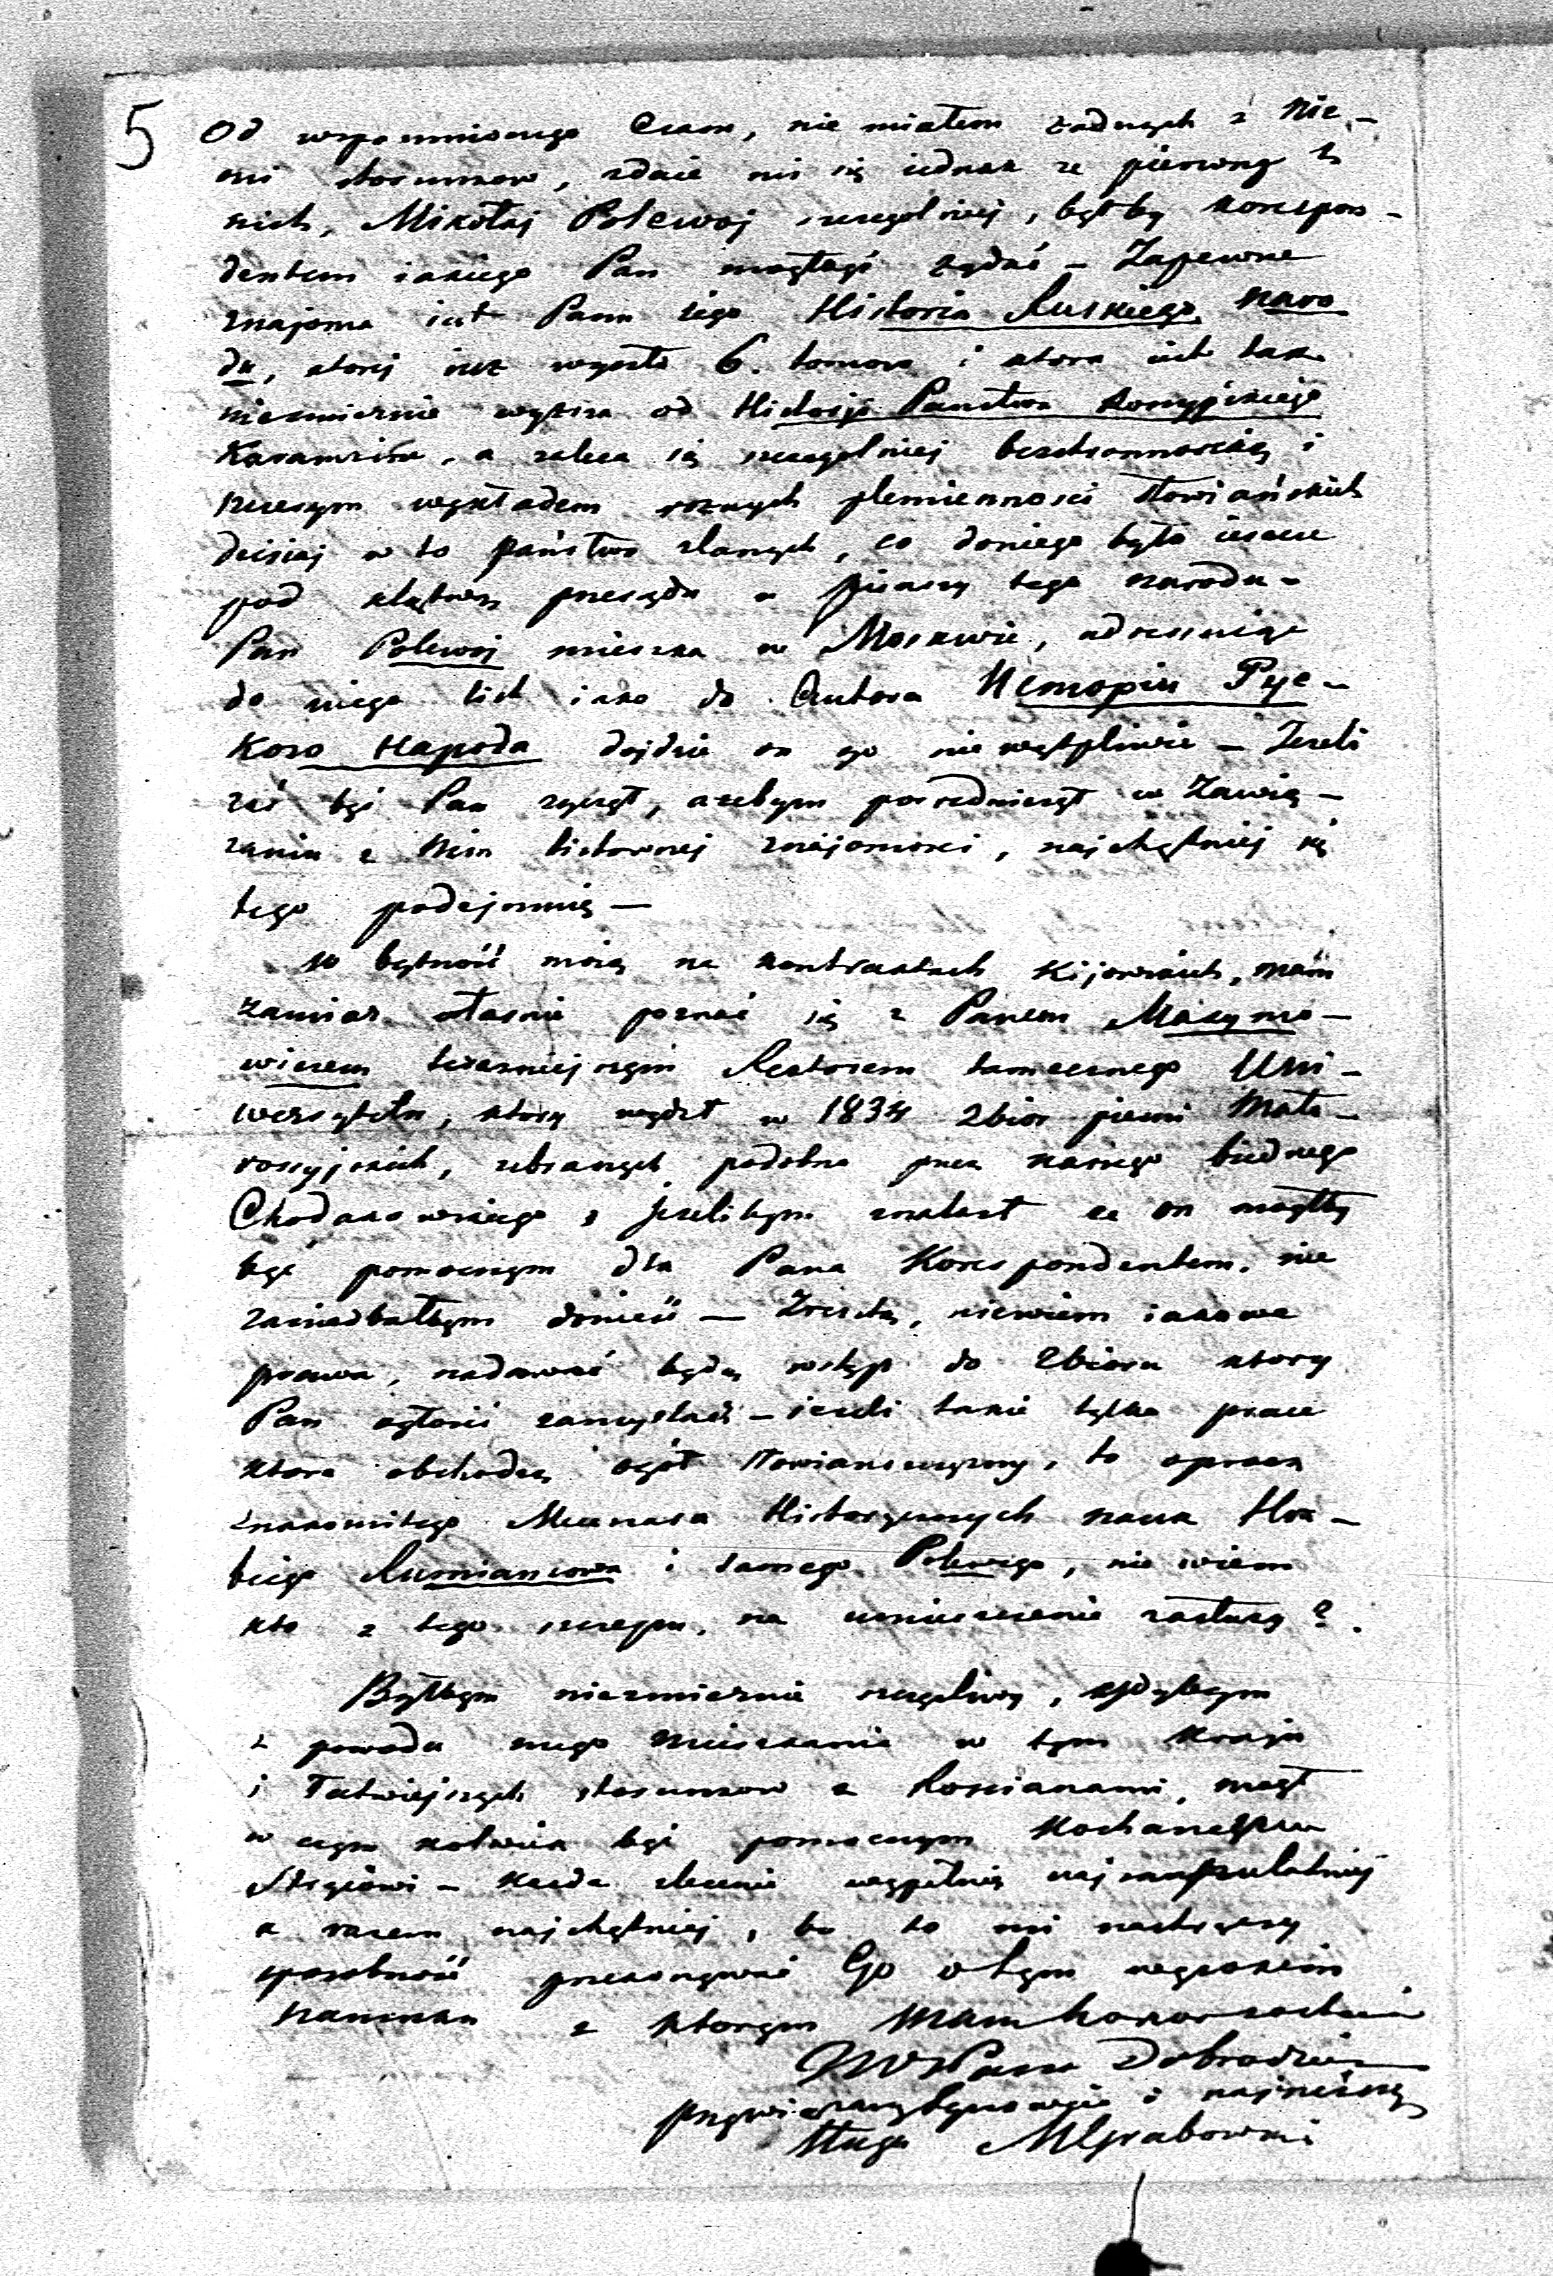 5
Od wspomnionego Czasu, nie miałem żadnych z Nie-
mi stosunkow, zdaie mi się iednak że pierwszy z
nich, Mikołaj Polewoj szczegolniej, byłby korespon-
dentem iakiego Pan mógłbyś żądać – Zapewne
znajoma iest Panu iego Historia Ruskiego Naro
du, ktorej iuż wyszło 6. tomow i ktora iest tak
niezmiernie wyższa od Historji Państwa Rossyjskiego
Karamzina, a zaleca się szczegolniej bezstronnością i
szczerym wykładem rożnych plemienności słowiańskich
dzisiaj w to państwo zlanych, co doniego było ieszcze
pod klątwą przesądu u pisarzy tego narodu –
Pan Polewoj mieszka w Moskwie, adressuiąc
do niego list iako do Autora Исторіи Рус-
кого Народа dojdzie on go niewątpliwie – Jeżeli
zaś byś Pan życzył, ażebym posredniczył w Zawią-
zaniu z Nim listownej znajomosci, najchętniej się
tego podejmię –
W bytność moią na kontraktach Kijowskich, mam
zamiar właśnie poznać się z Panem Maxymo-
wiczem terazniejszym Rektorem tamecznego Uni-
wersytetu, ktory wydał w 1834 Zbior pieśni Mało-
rossyjskich, zebranych podobno przez naszego biednego
Chodakowskiego, jeżelibym znalazł że on mógłby
być pomocnym dla Pana Korespondentem, nie
zaniedbałbym donieść – Zresztą, niewiem iakowe
prawa, nadawać będą wstęp do Zbioru ktory
Pan ogłosić zamyślasz – ieżeli takie tylko prace
ktore obchodzą ogół słowiańszczyzny, to oprocz
znakomitego Mecenasa Historycznych nauk Hra-
biego Rumiancowa i samego Polewego, nie wiem
kto z tego szczepu, na umieszczenie zasłuży?
Byłbym niezmiernie szczęśliwy, gdybym
z powodu mego Mieszkania w tym kraju
i łatwiejszych stosunkow z Rossianami, mógł
w czym kolwiek być pomocnym Kochanemu
Stryiowi – każde zlecenie wypełnię najskrupulatniej
a razem najchętniej, bo to mi nastręczy
sposobność przekonywać Go o tym wysokim
szacunku z ktorym mam honor zostawać
JWWPana Dobrodzieja
przywiązanym synowcem i najniższy
sługa MGrabowski